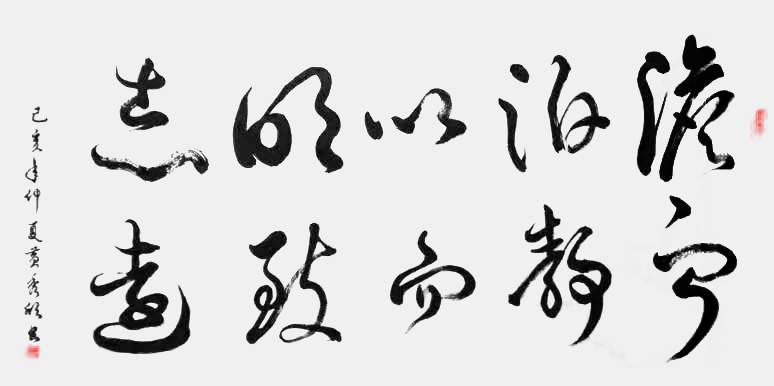 淡泊以明志
宁静而致遠
己亥年仲夏黄秀书